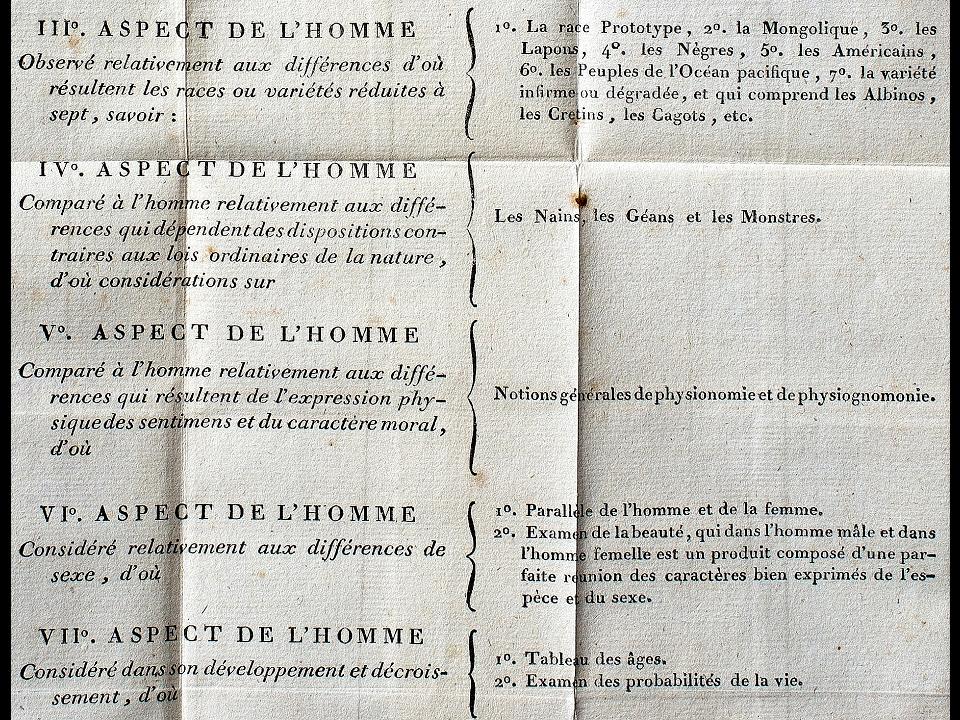 IIIº. ASPECT DE L'HOMME
Observé relativement aux différences d'où
résultent les races ou variétés réduites à
sept, savoir :
1º. La race Prototype, 2º. la Mongolique, 3º. les
Lapons, 4º. les Nègres, 5º. les Américains,
6º. les Peuples de l'Océan pacifique, 7º. la variété
infirme ou dégradée, et qui comprend les Albinos,
les Cretins, les Cagots, etc.
IVº. ASPECT DE L'HOMME
Comparé à l'homme relativement aux diffé-
rences qui dépendent des dispositions con-
traires aux lois ordinaires de la nature,
d'où considérations sur
Les Nains, les Géans et les Monstres.
Vº. ASPECT DE L'HOMME
Comparé à l'homme relativement aux diffé-
rences qui résultent de l'expression phy-
sique des sentimens et du caractère moral,
d'où
Notions générales de physionomie et de physiognomonie.
VIº. ASPECT DE L'HOMME
Considéré relativement aux différences de
sexe, d'où
1º. Parallèle de l'homme et de la femme.
2º. Examen de la beauté, qui dans l'homme mâle et dans
l'homme femelle est un produit composé d'une par-
faite réunion des caractères bien exprimés de l'es-
pèce et du sexe.
VIIº. ASPECT DE L'HOMME
Considéré dans son développement et décrois-
sement, d'où
1º. Tableau des âges.
2º. Examen des probabilités de la vie.